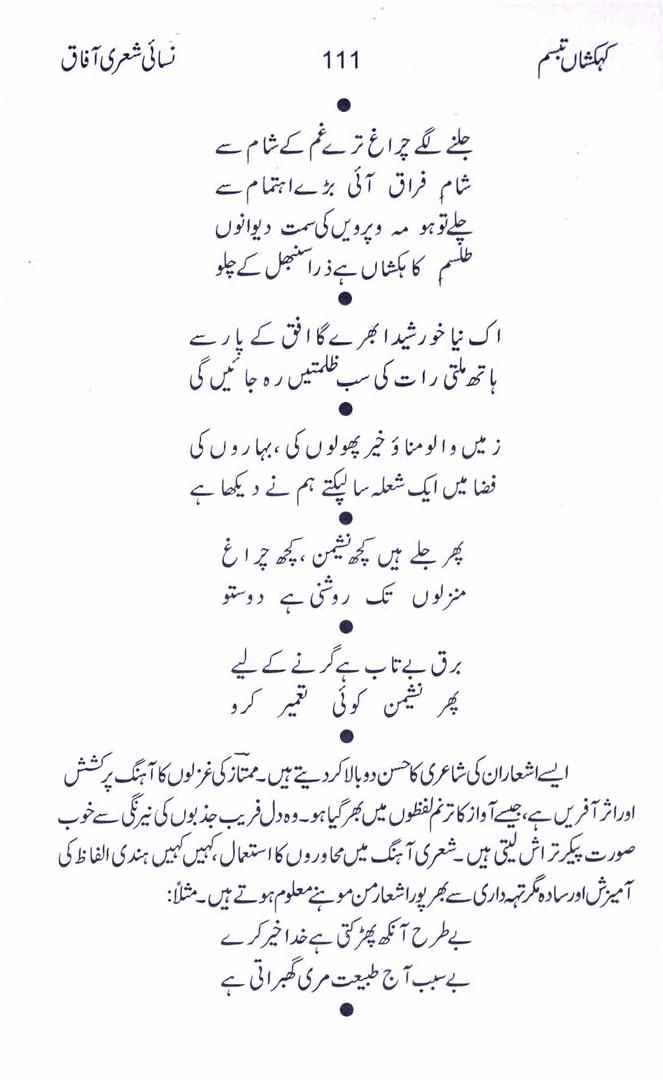 کہکشاں تبسم 111 نسائی شعری آفاق
●
جلنے لگے چراغ ترے غم کے شام سے
شام فراق آئی بڑے اہتمام سے
چلے تو ہو مہ و پرویں کی سمت دیوانوں
طلسم کاہکشاں ہے ذرا سنبھل کے چلو
●
اک نیا خورشید ابھرے گا افق کے پار سے
ہاتھ ملتی رات کی سب ظلمتیں رہ جائیں گی
●
زمیں والو مناؤ خیر پھولوں کی، بہاروں کی
فضا میں ایک شعلہ سا لپکتے ہم نے دیکھا ہے
●
پھر جلے ہیں کچھ نشیمن، کچھ چراغ
منزلوں تک روشنی ہے دوستو
●
برق بے تاب ہے گرنے کے لیے
پھر نشیمن کوئی تعمیر کرو
●
ایسے اشعار ان کی شاعری کا حسن دوبالا کر دیتے ہیں۔ ممتازؔ کی غزلوں کا آہنگ پرکشش
اور اثر آفریں ہے، جیسے آواز کا ترنم لفظوں میں بھر گیا ہو۔ وہ دل فریب جذبوں کی نیرنگی سے خوب
صورت پیکر تراش لیتی ہیں۔ شعری آہنگ میں محاوروں کا استعمال، کہیں کہیں ہندی الفاظ کی
آمیزش اور سادہ مگر تہہ داری سے بھرپور اشعار من موہنے معلوم ہوتے ہیں۔ مثلاً:
بے طرح آنکھ پھڑکتی ہے خدا خیر کرے
بے سبب آج طبیعت مری گھبراتی ہے
●